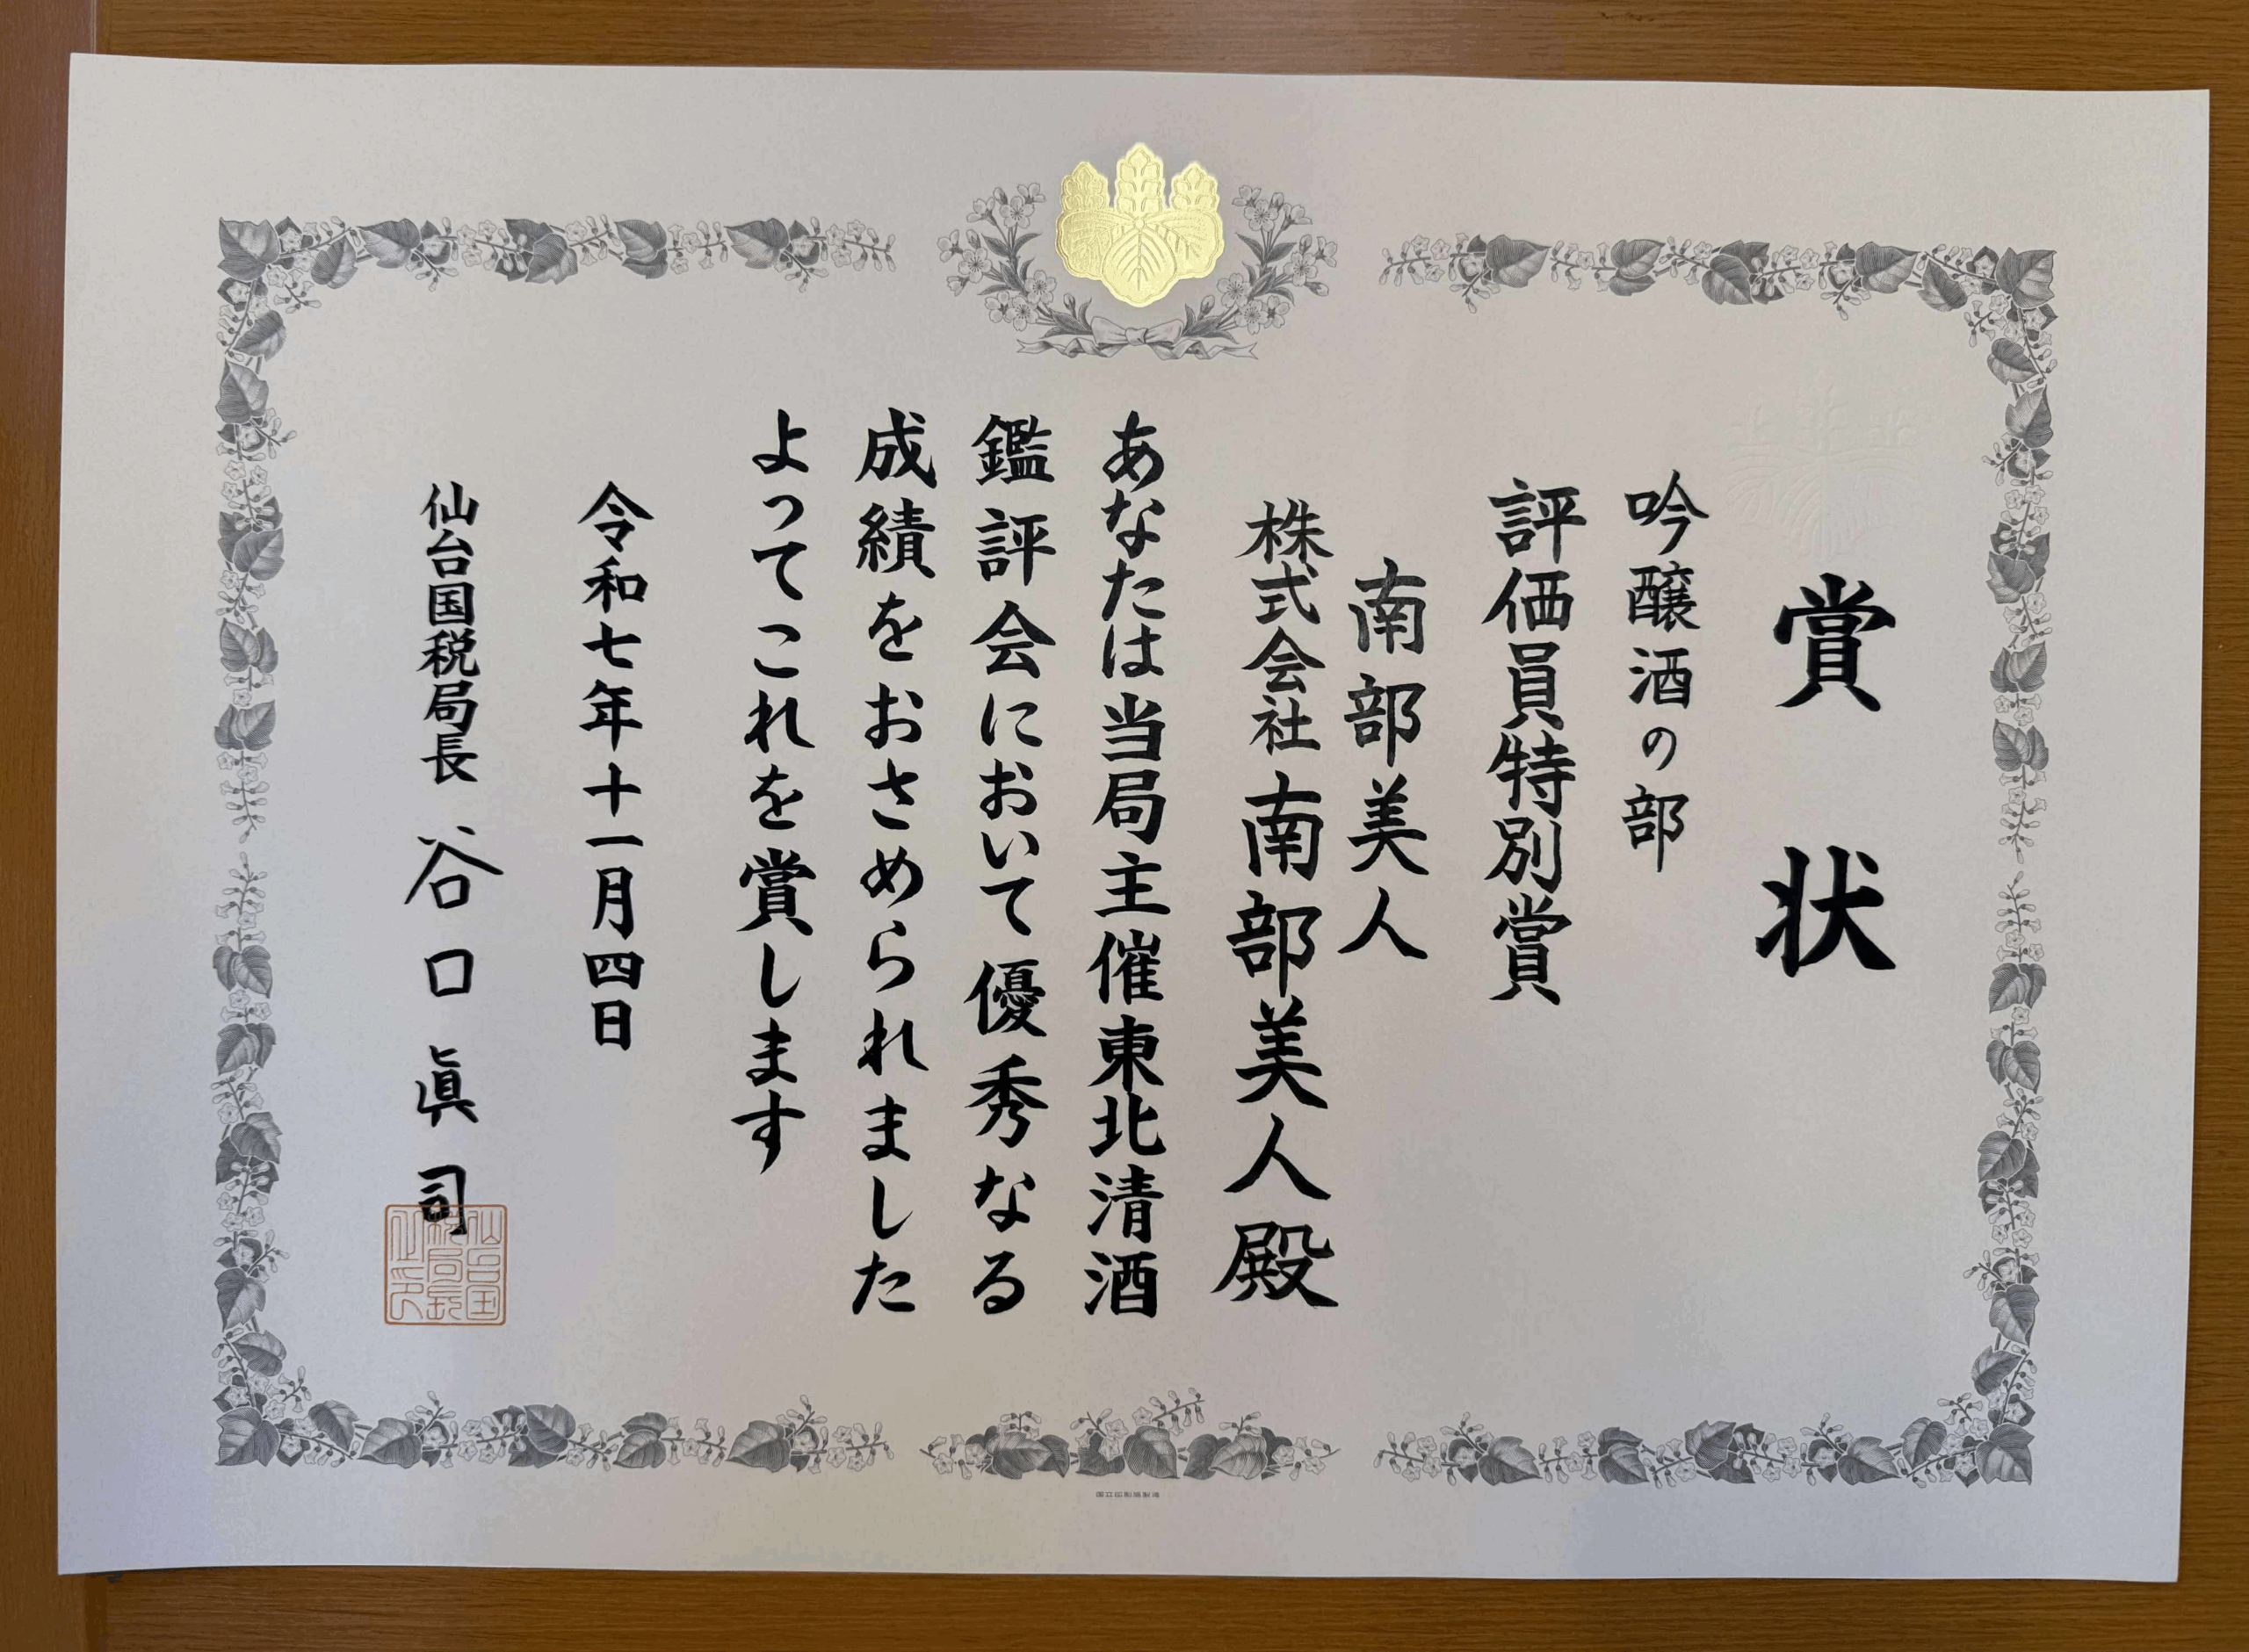 賞状
吟醸酒の部
評価員特別賞
南部美人
株式会社南部美人殿
あなたは当局主催東北清酒
鑑評会において優秀なる
成績をおさめられました
よってこれを賞します
令和七年十一月四日
仙台国税局長 谷口眞司
国立印刷局製造